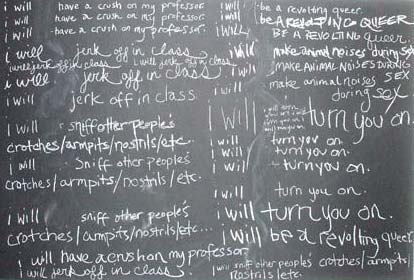 i will have a crush on my professor
i will have a crush on my professor
i will have a crush on my professor.
i will jerk off in class
i will jerk off in class i will jerk off in class
i will jerk off in class
i will jerk off in class
i will sniff other people's
crotches/armpits/nostrils/etc.
i will sniff other people's
crotches/armpits/nostrils/etc.
i will sniff other people's
crotches/armpits/nostrils/etc...
i will have a crush on my professor
i will jerk off in class.
i will be a revolting queer.
i will be a REVOLTING QUEER
i will BE A REVOLTING Queer.
i will make animal noises during sex
i will MAKE ANIMAL NOISES DURING
SEX
i will make animal noises
during sex
i will turn you on.
i will turn you on.
i will turn you on.
i will turn you on.
i will turn you on.
i will be a revolting queer
i will sniff other people's crotches/armpits/
nostrils/etc.